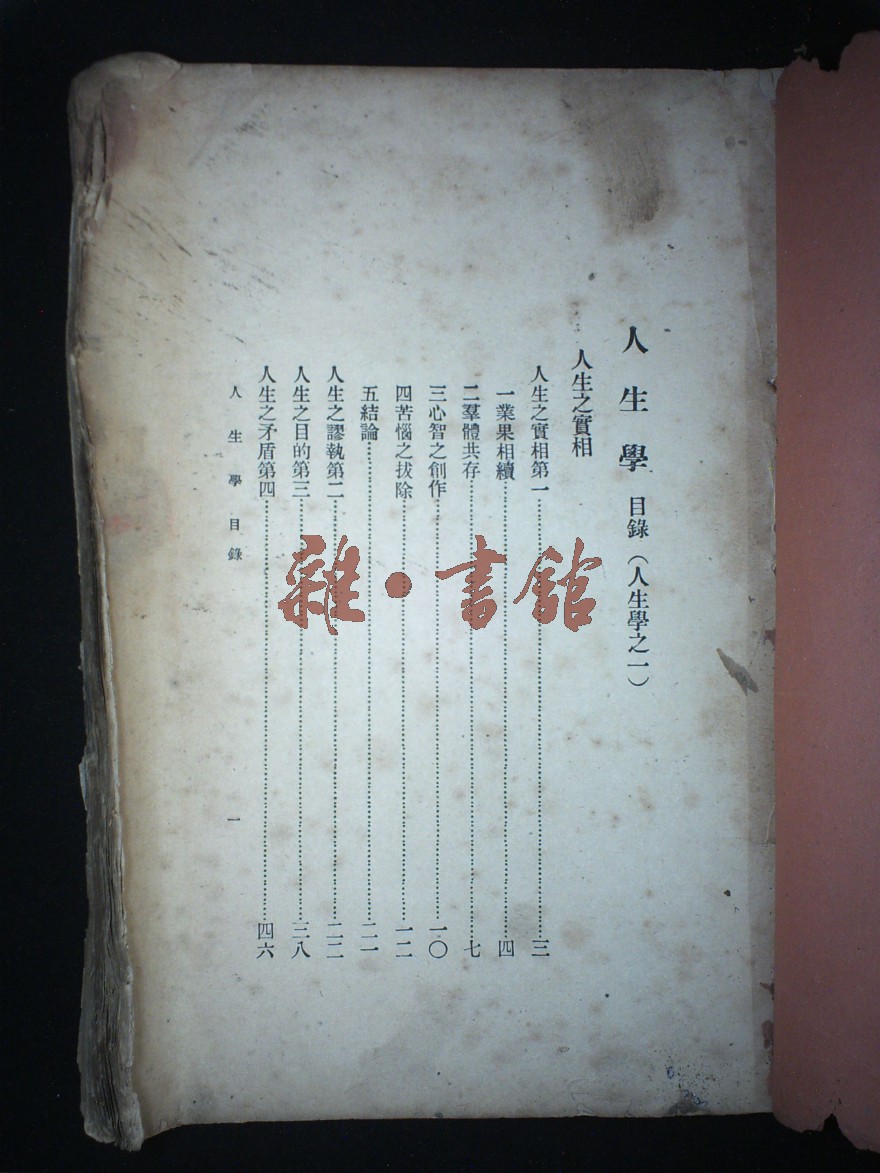 人生學 目錄（人生學之一）
人生之實相
人生之實相第一……三
一業果相續……四
二羣體共存……七
三心智之創作……一〇
四苦惱之拔除……一二
五結論……二一
人生之謬執第二……二二
人生之目的第三……三八
人生之矛盾第四……四六
人生學目錄 一
雜·書館